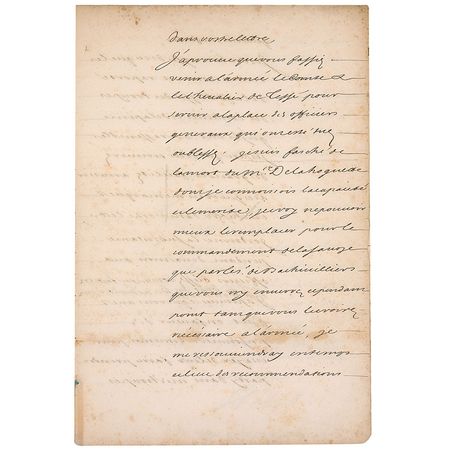 dans vostre lettre
J'aprouve que vous fassiez
venir a l'armée le Comte et
le Chevalier de Tessé pour
servir a la place des officiers
generaux qui ont esté tuez
ou blessez, je suis fasché de
la mort du Mis. De la Hoguette
dont je connoissois la capacité
et le merite, je croy ne pouvoir
mieux le remplacer pour le
commandement de la Savoye
que par le de Bachivilliers
que vous n'y envoirez cependant
point tant que vous le croirez
nécessaire a l'armée, je
me ressouviendray en temps
et lieu des recommendations